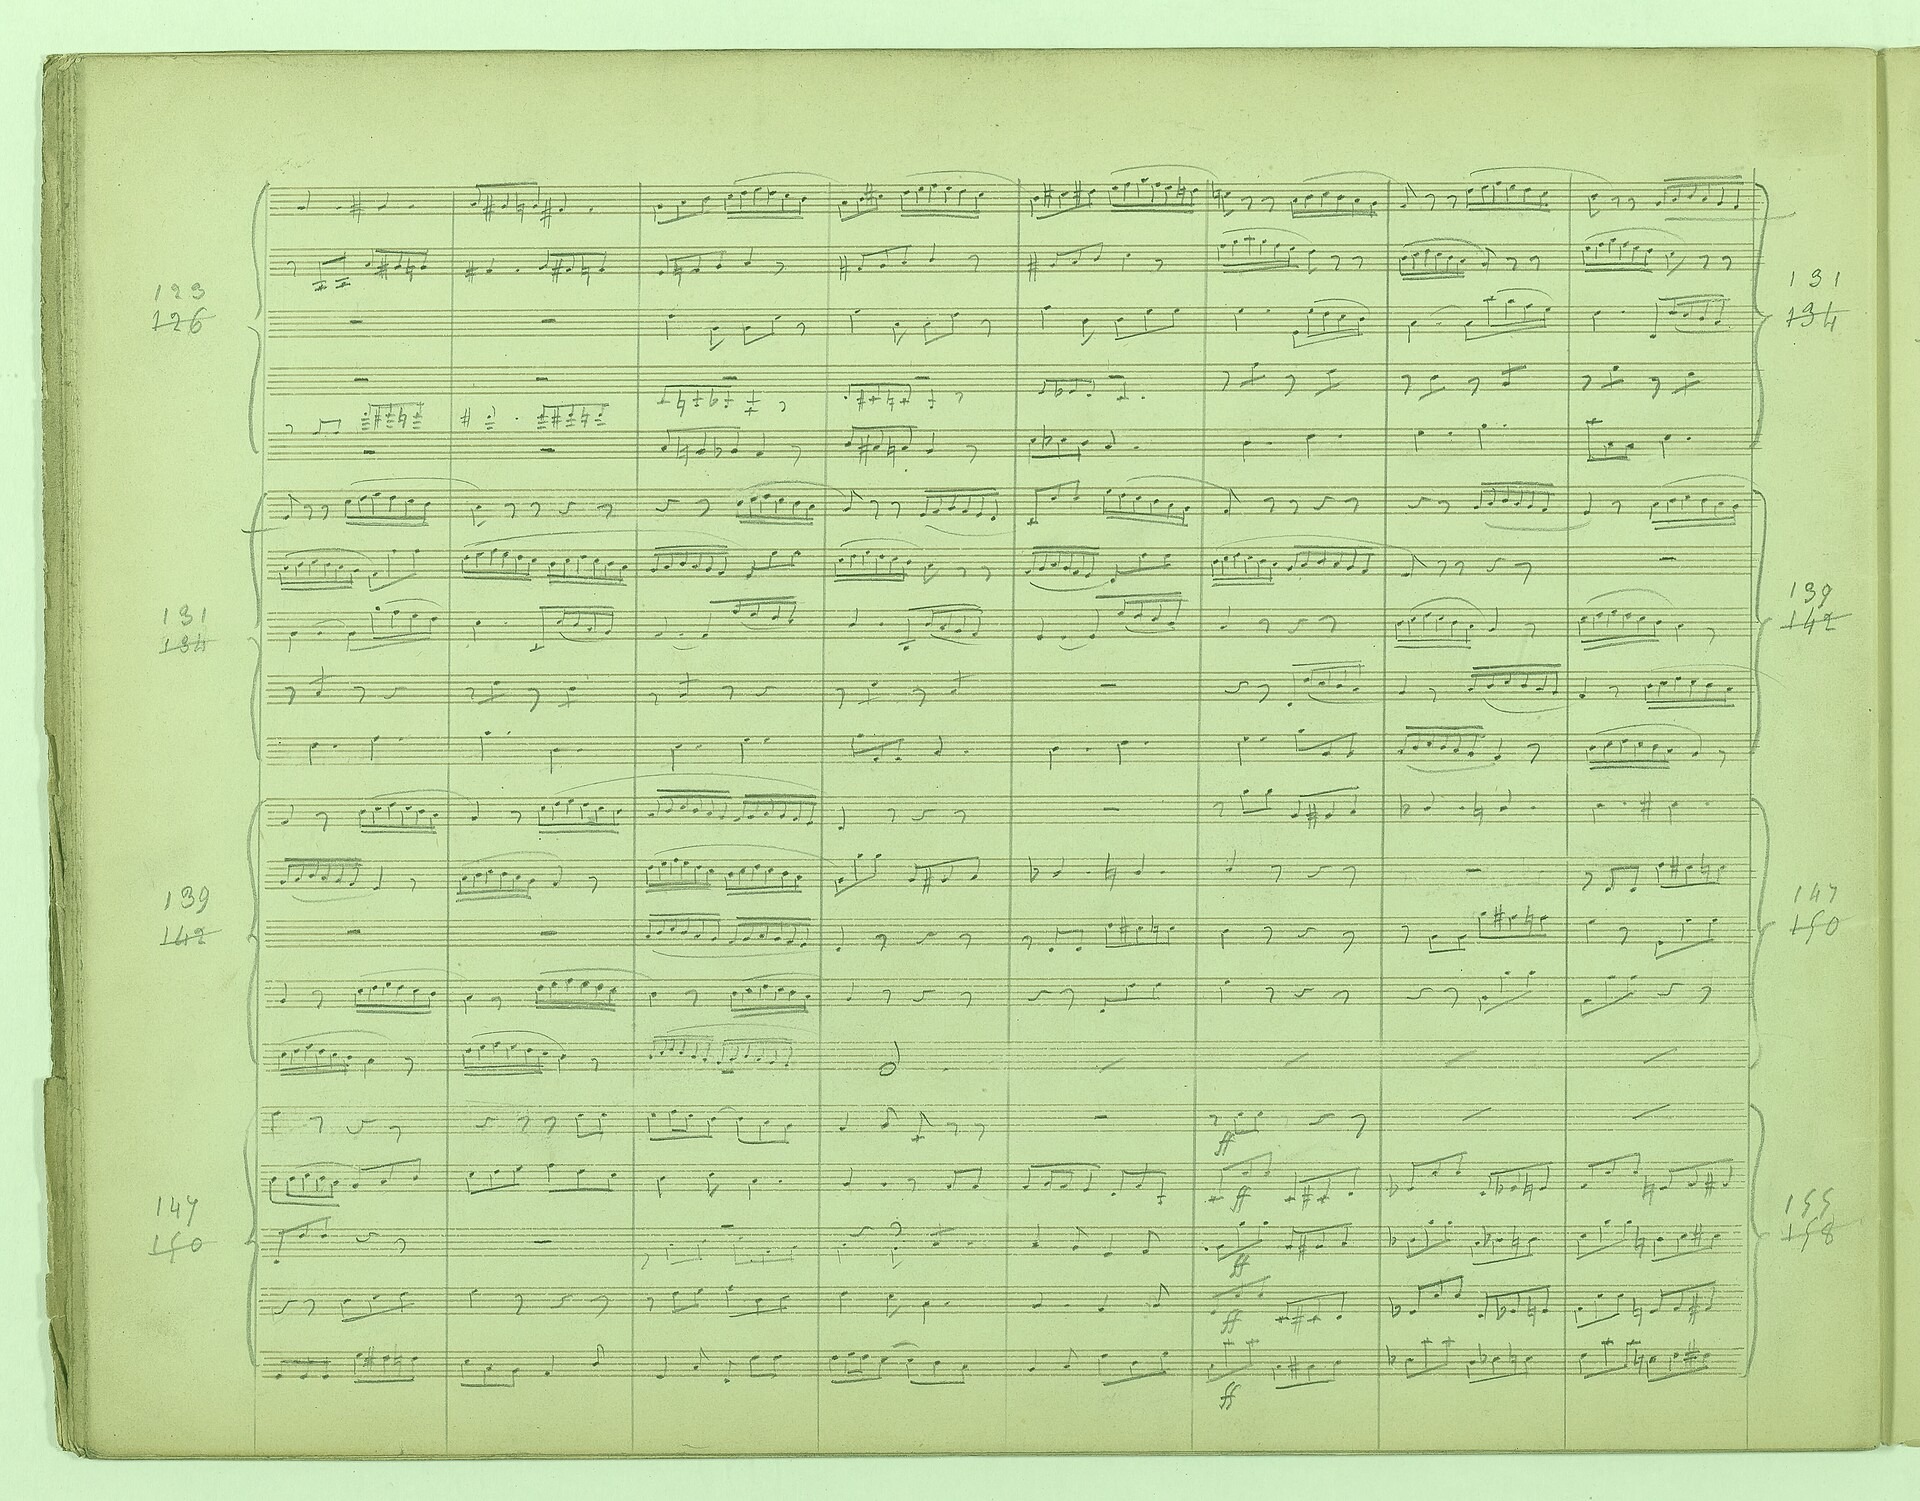 123
126
131
134
131
134
139
142
139
142
147
150
ff
147
150
ff
155
158
ff
ff
ff